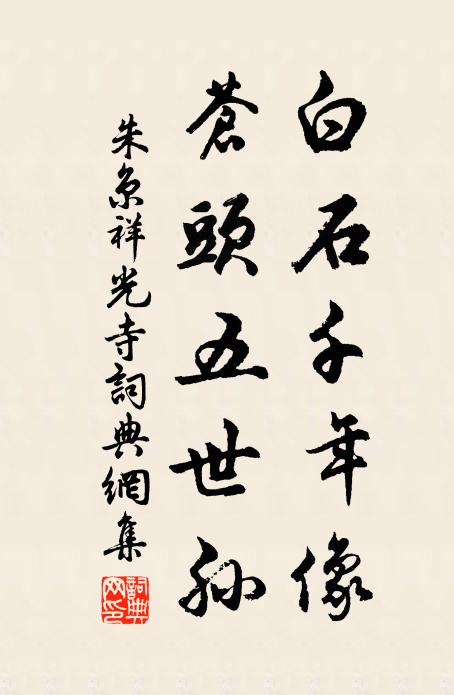 白石千年像
蒼頭五世孙
朱京祥光寺詞典網集
詞典网印